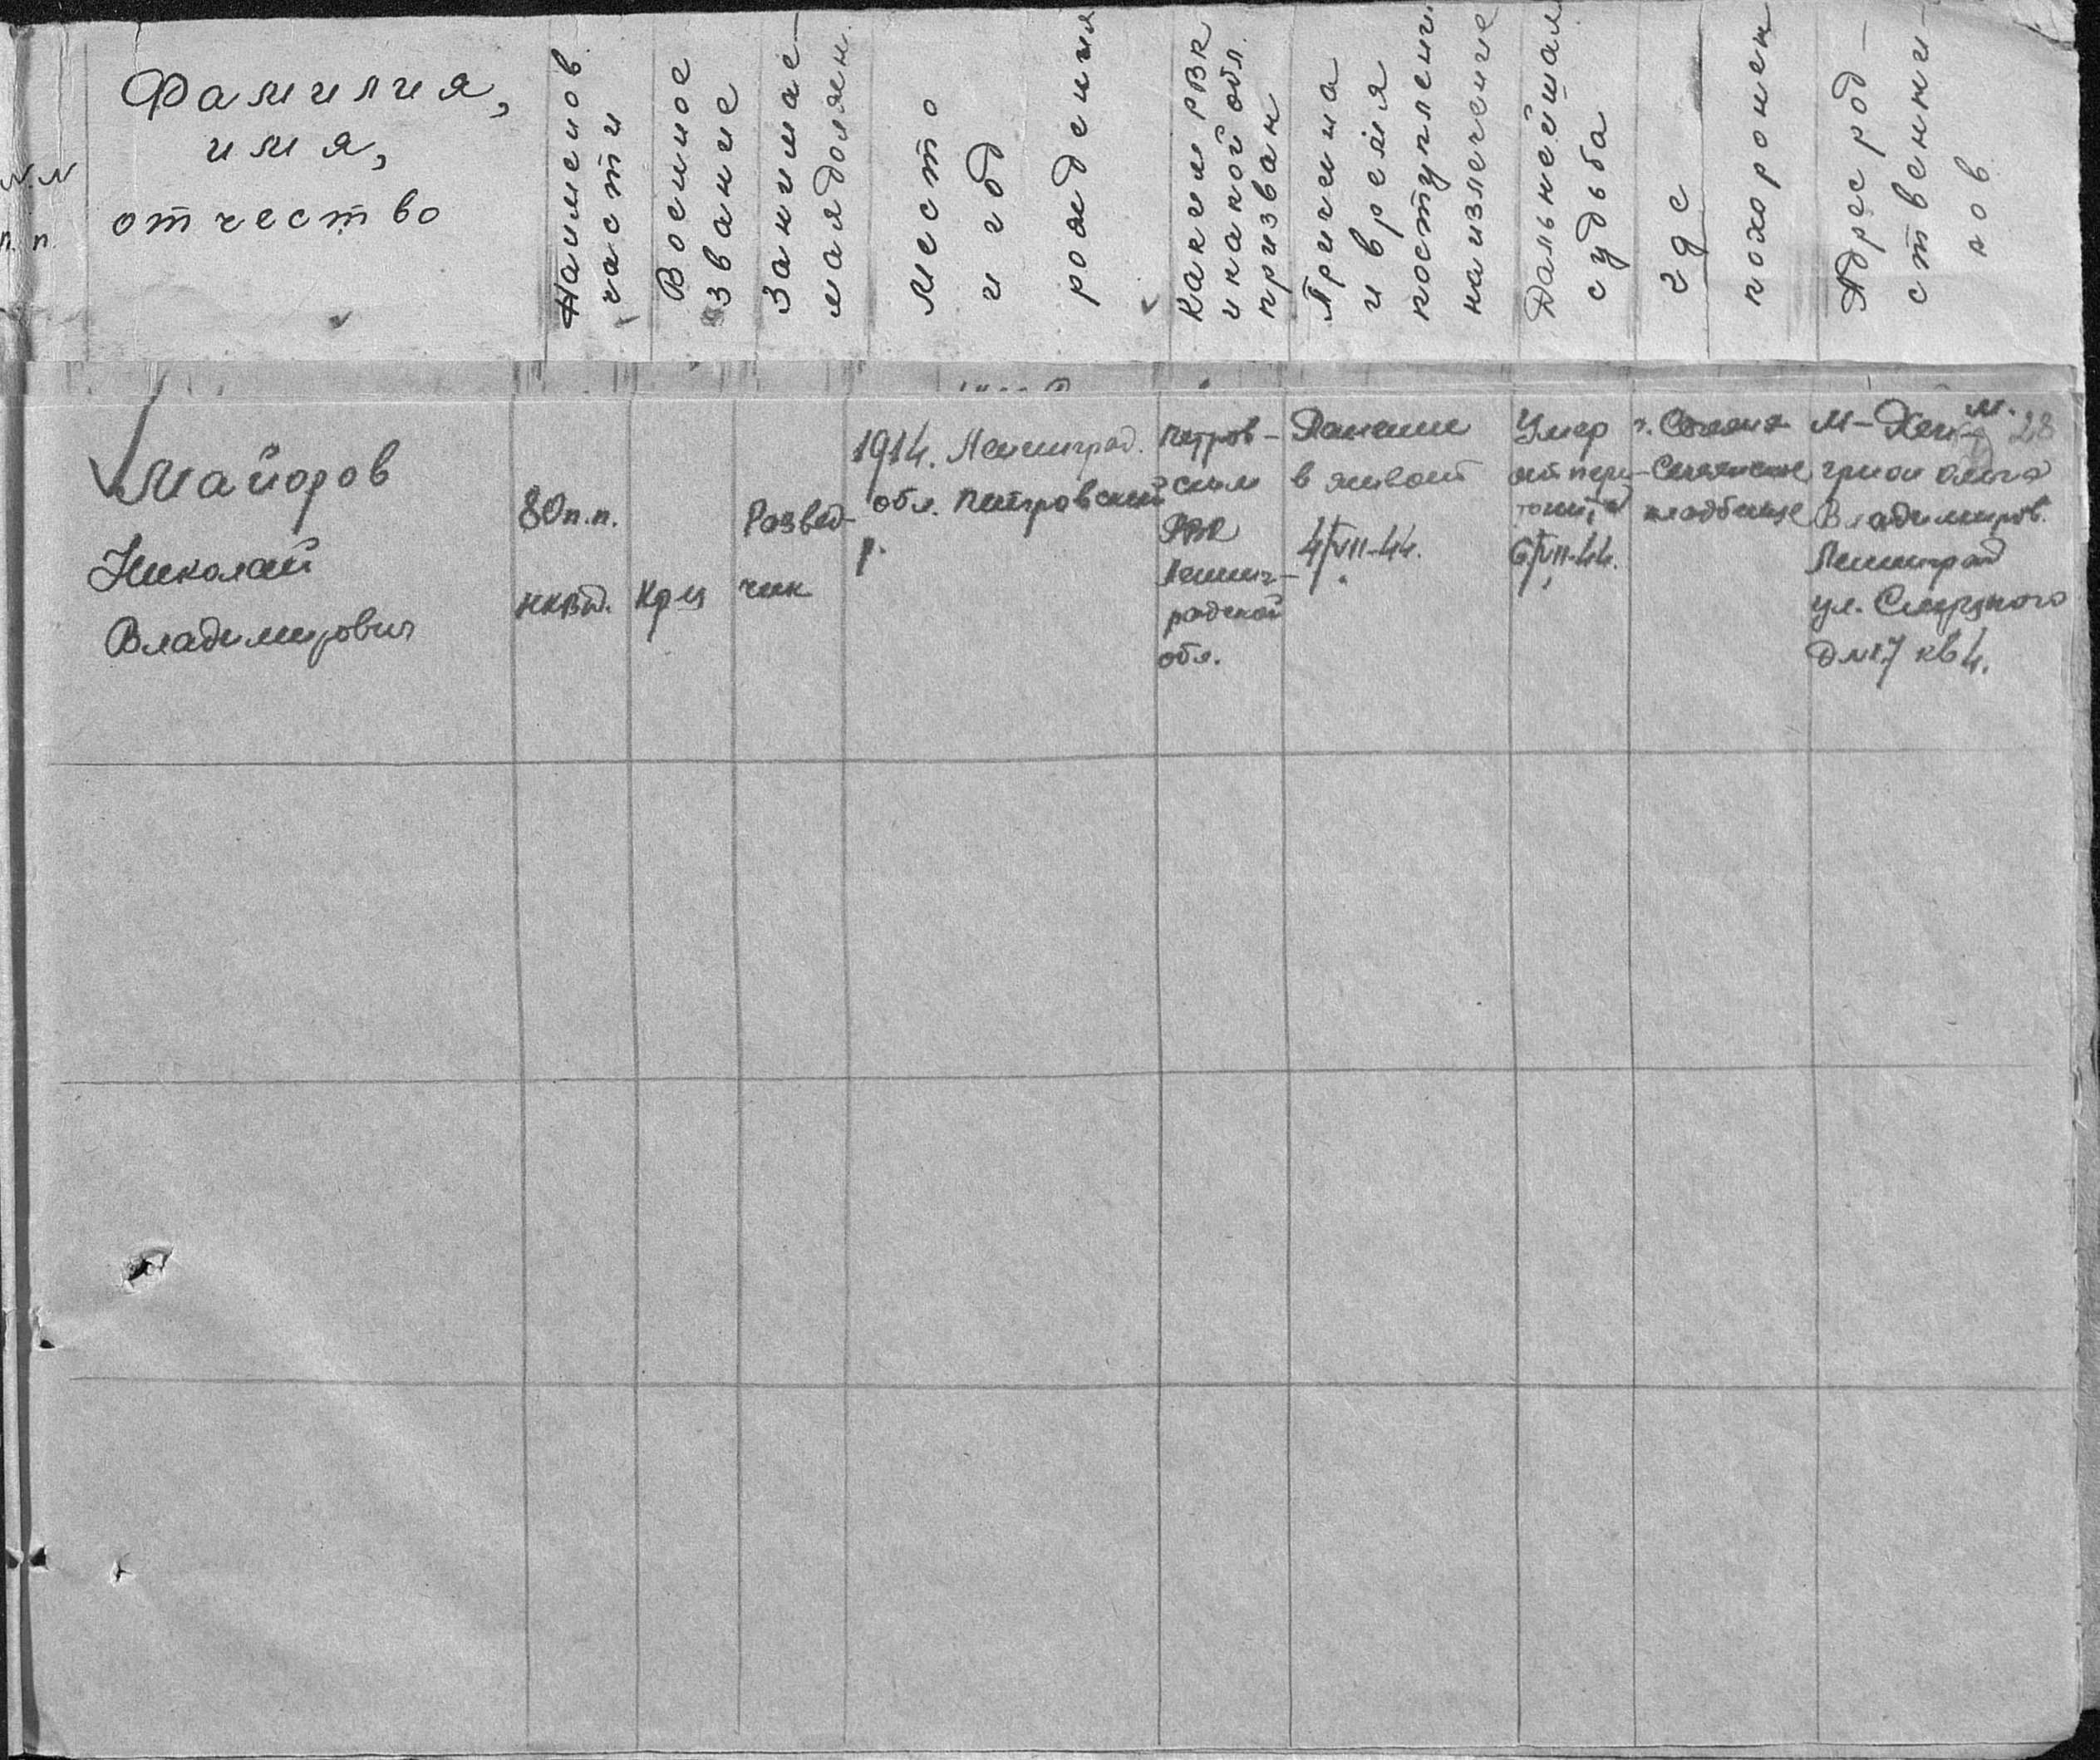 N.N
п. п.
Фамилия,
имя,
отчество
Наименов.
части
Военное
звание
Занимае-
мая должн.
Место
и год
рождения
Каким РВК
и какой обл.
призван
Причина
и время
поступления
на излечение
Дальнейшая
судьба
где
похоронен
Адрес род-
ственни-
ков
28
Майоров
Николай
Владимирович
80 п.п.
НКВД.
Кр-ц
Развед-
чик
1914. Ленинград.
обл. Петровский
р.
Петров-
ским
РВК
Ленинг-
радской
обл.
Ранение
в живот
4/VII-44.
Умер
от пери-
тонита
6/VII-44.
кладбище
Владимиров.
Ленинград
ул.
кв 4.